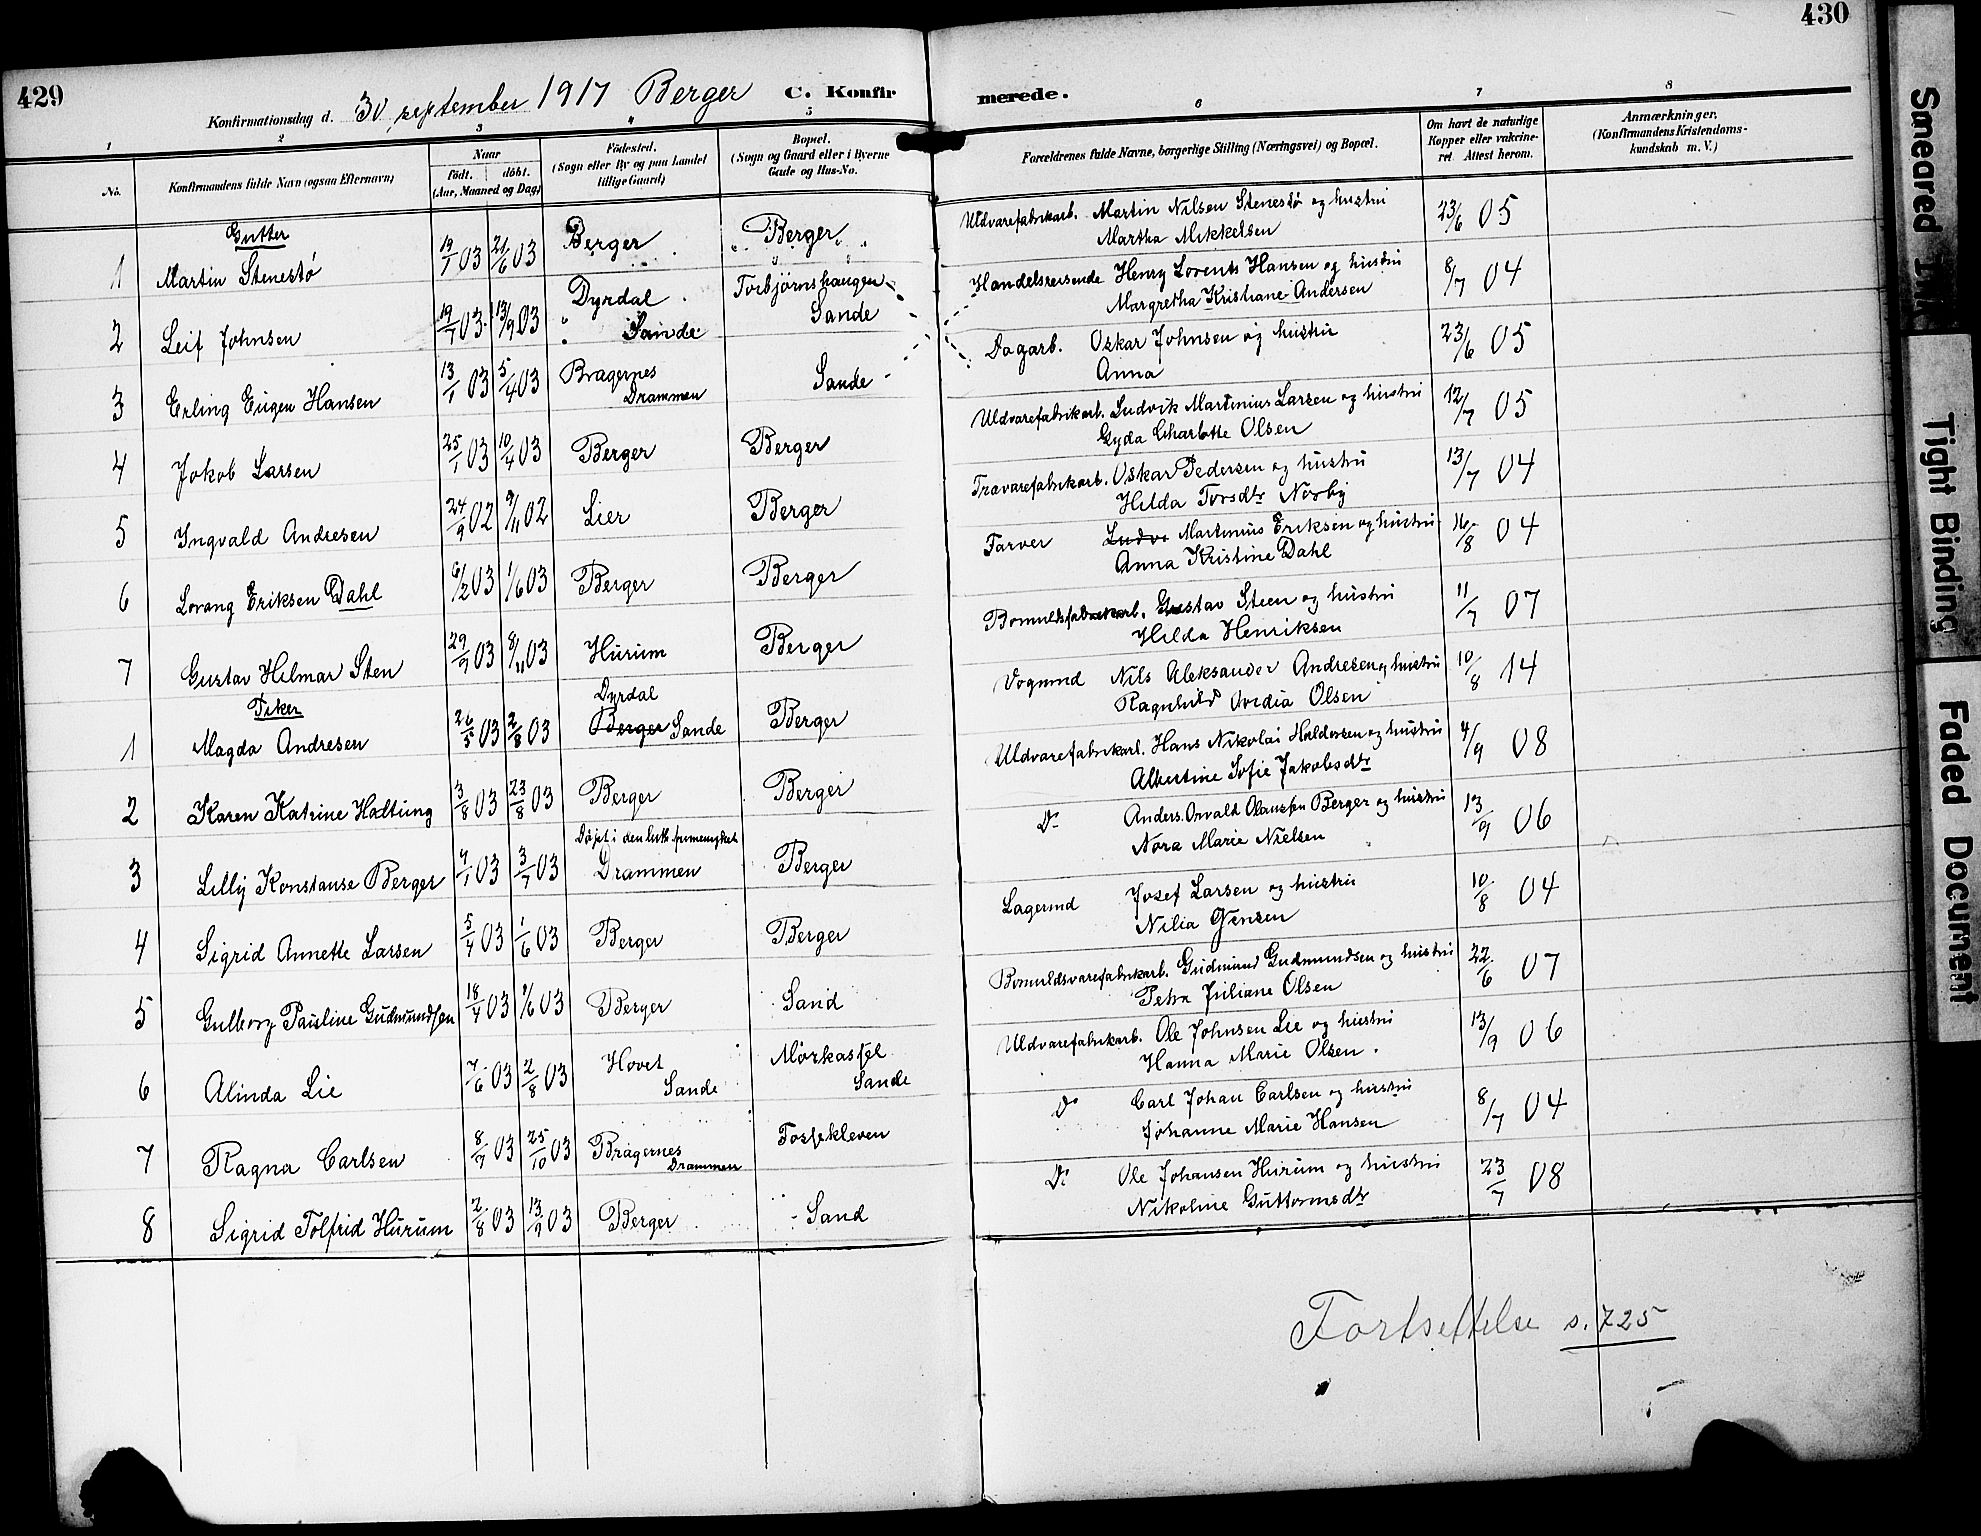 429
Konfirmationsdag d. 30 september 1917 Berger C. Konfir
1 2 3 " 5
No.
Konfirmandens fulde Navn (ogsaa Efternavn)
Naar
født. døbt.
(Aar, Maaned og Dag)
Fødested.
(Sogn eller By og paa Landet
tillige Gaard)
Bopæl.
(Sogn og Gaard eller i Byerne
Gade og Hus-No.
Gutter
1 Martin Stenestø 19/1 03 21/6 03 Berger Berger
2 Leif Johnsen 19/7 03 13/9 03 Dyrdal Sande Torbjørnshaugen Sande
3 Erling Eugen Hansen 13/1 03 5/4 03 Bragernes Drammen Sande
4 Jakob Larsen 25/1 03 10/4 03 Berger Berger
5 Ingvald Andresen 24/9 02 9/11 02 Lier Berger
6 Lorang Eriksen Dahl 6/2 03 1/6 03 Berger Berger
7 Gustav Hilmar Sten 29/9 03 8/11 03 Hurum Berger
Piker
1 Magda Andresen 26/5 03 2/8 03 Dyrdal Berger Sande Berger
2 Karen Katrine Haltung 3/8 03 23/8 03 Berger Berger
3 Lilly Konstanse Berger 4/1 03 3/7 03 Døpt i den luth. frimenighet Drammen Berger
4 Sigrid Annette Larsen 5/4 03 1/6 03 Berger Berger
5 Gulborg Pauline Gudmundsen 18/4 03 1/6 03 Berger Sand
6 Alinda Lie 7/6 03 2/8 03 Hovet Sande Mørkassel Sande
7 Ragna Carlsen 8/7 03 25/10 03 Bragernes Drammen Fossekleven
8 Sigrid Tolfrid Hurum 2/8 03 13/9 03 Berger Sand
430
merede.
6 7 8
Forældrenes fulde Navne, borgerlige Stilling (Næringsvei) og Bopæl.
Om havt de naturlige
Kopper eller vakcine-
ret. Attest herom.
Anmærkninger.
(Konfirmandens Kristendoms-
kundskab m. V.)
Uldvarefabrikarb. Martin Nilsen Stenestø og hustru 23/6 05
Martha Mikkelsen
Handelsreisende Henry Lorents Hansen og hustru 8/7 04
Margretha Kristiane Andersen
Dagarb. Oskar Johnsen og hustru 23/6 05
Anna
Uldvarefabrikarb. Ludvik Martinius Larsen og hustru 12/7 05
Gyda Charlotte Olsen
Trævarefabrikarb. Oskar Pedersen og hustru 13/7 04
Hilda Torsdtr Norby
Farver Ludv. Martinius Eriksen og hustru 16/8 04
Anna Kristine Dahl
Bomuldsfabrikarb. Gustav Steen og hustru 11/7 07
Hilda Henriksen
Vognmd Nils Aleksander Andresen og hustru 10/8 14
Ragnhild Ovidia Olsen
Uldvarefabrikarb. Hans Nikolai Haldorsen og hustru 4/9 08
Albertine Sofie Jakobsdtr
Do Anders Orvald Olaussen Berger og hustru 13/9 06
Nora Marie Nielsen
Lagermd Josef Larsen og hustru 10/8 04
Nilia Jensen
Bomuldsvarefabrikarb. Gudmund Gudmundsen og hustru 22/6 07
Petra Juliane Olsen
Uldvarefabrikarb. Ole Johnsen Lie og hustru 13/9 06
Hanna Marie Olsen.
Do Carl Johan Carlsen og hustru 8/7 04
Johanne Marie Hansen
Do Ole Johansen Hurum og hustru 23/7 08
Nikoline Guttormsdtr
Fortsettelse s. 725
Smeared Ink
Tight Binding
Faded Document